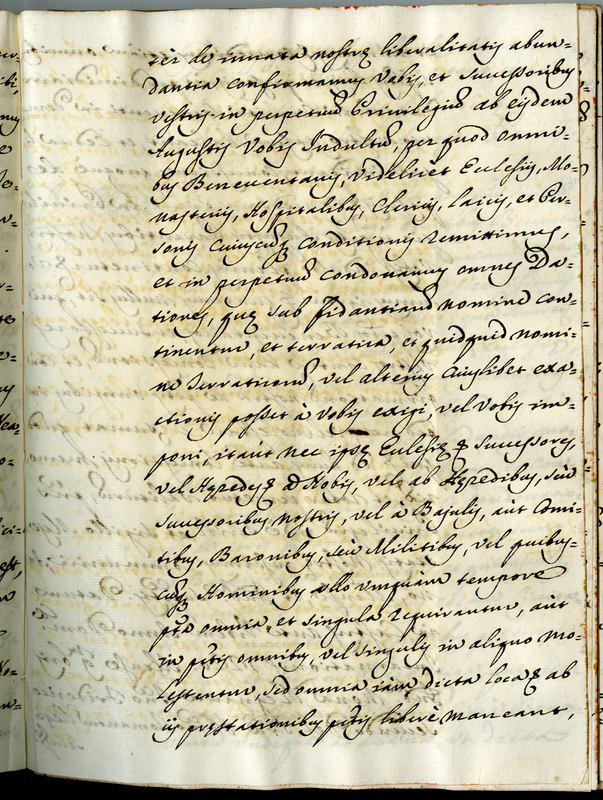 ter de innata nostrę liberalitatis abun=
dantia confirmamus Vobis, et Successoribus
vestris in perpetuũ Privilegiũ ab eisdem
Augustis Vobis Indultũ, per quod omni=
bus Beneventanis, videlicet Ecclesijs, Mo=
nasterijs, Hospitalibus, Clericis, Laicis, et Per=
sonis cuiuscumq; conditionis remittimus,
et in perpetuũ condonamus omnes Da=
tiones, quę sub fidantiarũ nomine con=
tinentur, et terratica, et quidquid nomi=
ne Serrationũ, vel alterius cuiuslibet exa=
ctionis posset à Vobis exigi, vel Vobis im=
poni, itaùt nec ipsę Ecclesię, Successores,
vel Hęredes à Nobis, vel ab Hęredibus, seù
Successoribus nostris, vel à Bajulis, aùt Comi=
tibus, Baronibus, seù Militibus, vel quibus=
cumq; Hominibus ullo umquàm tempore
pta omnia, et singula requirantur, aùt
in ptis omnibus, vel singulis in aliquo mo=
lestentur, sed omnia iàm dicta loca ab
ijs pręstationibus ptis liberè maneant,